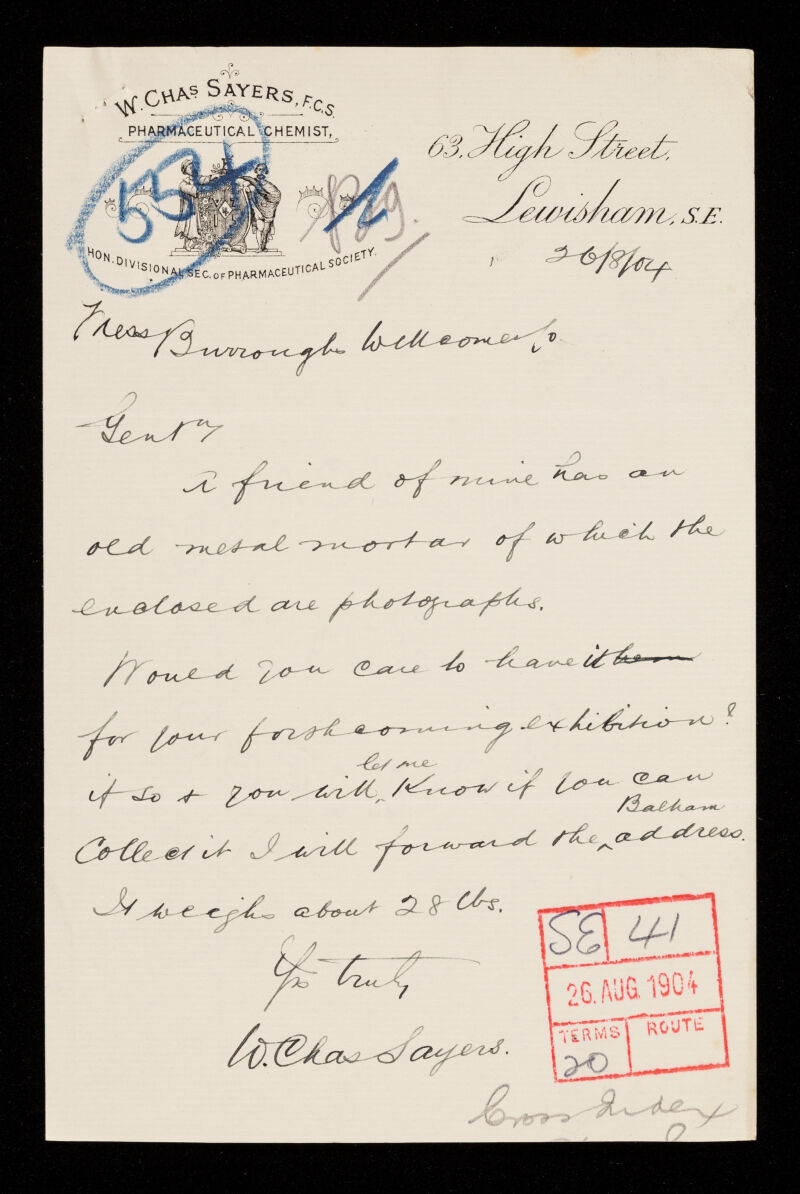 W. CHAS SAYERS, F.C.S.
PHARMACEUTICAL CHEMIST,
HON. DIVISIONAL SEC. OF PHARMACEUTICAL SOCIETY.
554
63, High Street,
Lewisham, S.E.
26/8/04
Mess Burroughs Wellcome & Co
Gentn
A friend of mine has an
old metal mortar of which the
enclosed are photographs.
Would you care to have it them
for your forthcoming exhibition?
if so & you will let me know if you can
Collect it I will forward the Balham address.
It weighs about 28 lbs.
Yrs truly
W. Chas Sayers.
SE 41
26. AUG. 1904
TERMS ROUTE
20
Cross Index